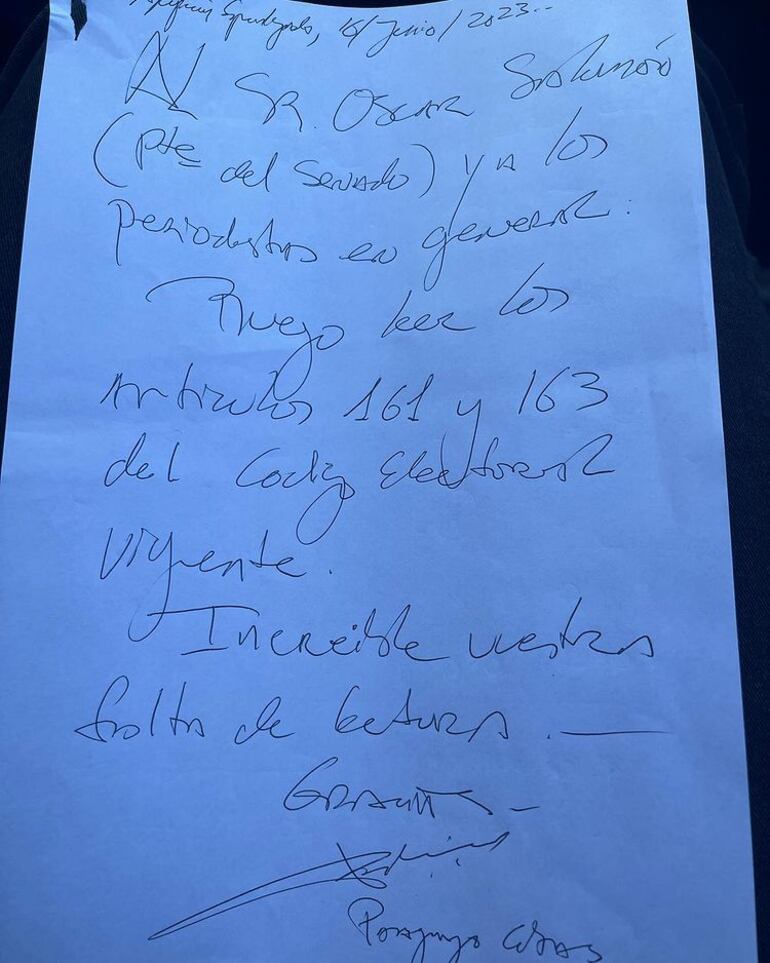 16/Junio/2023..
Al SR. OSCAR Salomón
(Pte del Senado) y a los
periodistas en general.
Ruego leer los
Artículos 161 y 163
del Codigo Electoral
vigente.
Increible vuestra
falta de lectura. —
GRACIAS -
Paraguayo Cubas